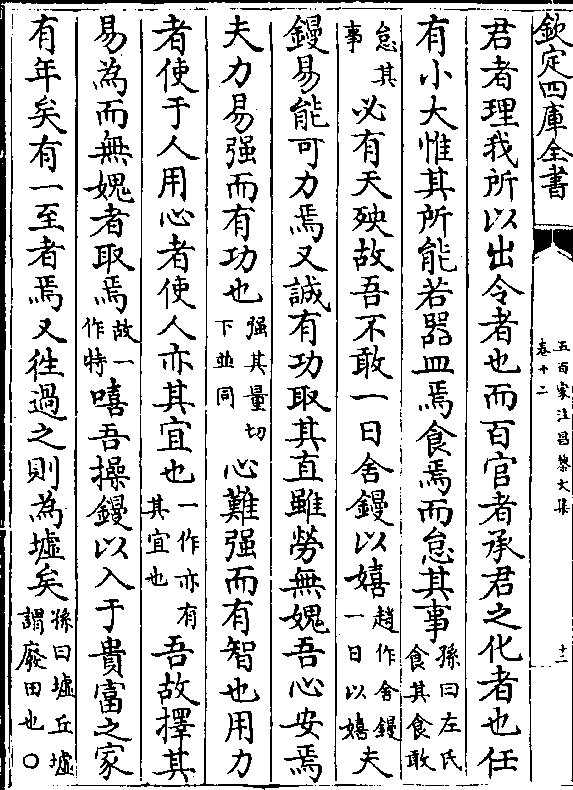 欽定四庫全書
五百家注昌黎文集
卷十二
十二
君者理我所以出令者也而百官者承君之化者也任
有小大惟其所能若器皿焉食焉而怠其事孫曰左氏食其食敢
怠其事必有天殃故吾不敢一日舍鏝以嬉趙作舍鏝一日以嬉夫
鏝易能可力焉又誠有功取其直雖勞無媿吾心安焉
夫力易强而有功也强其量切下並同心難强而有智也用力
者使于人用心者使人亦其宜也一作亦有其宜也吾故擇其
易為而無媿者取焉故一作特嘻吾操鏝以入于貴富之家
有年矣有一至者焉又徃過之則為墟矣孫曰墟丘墟謂廢田也○